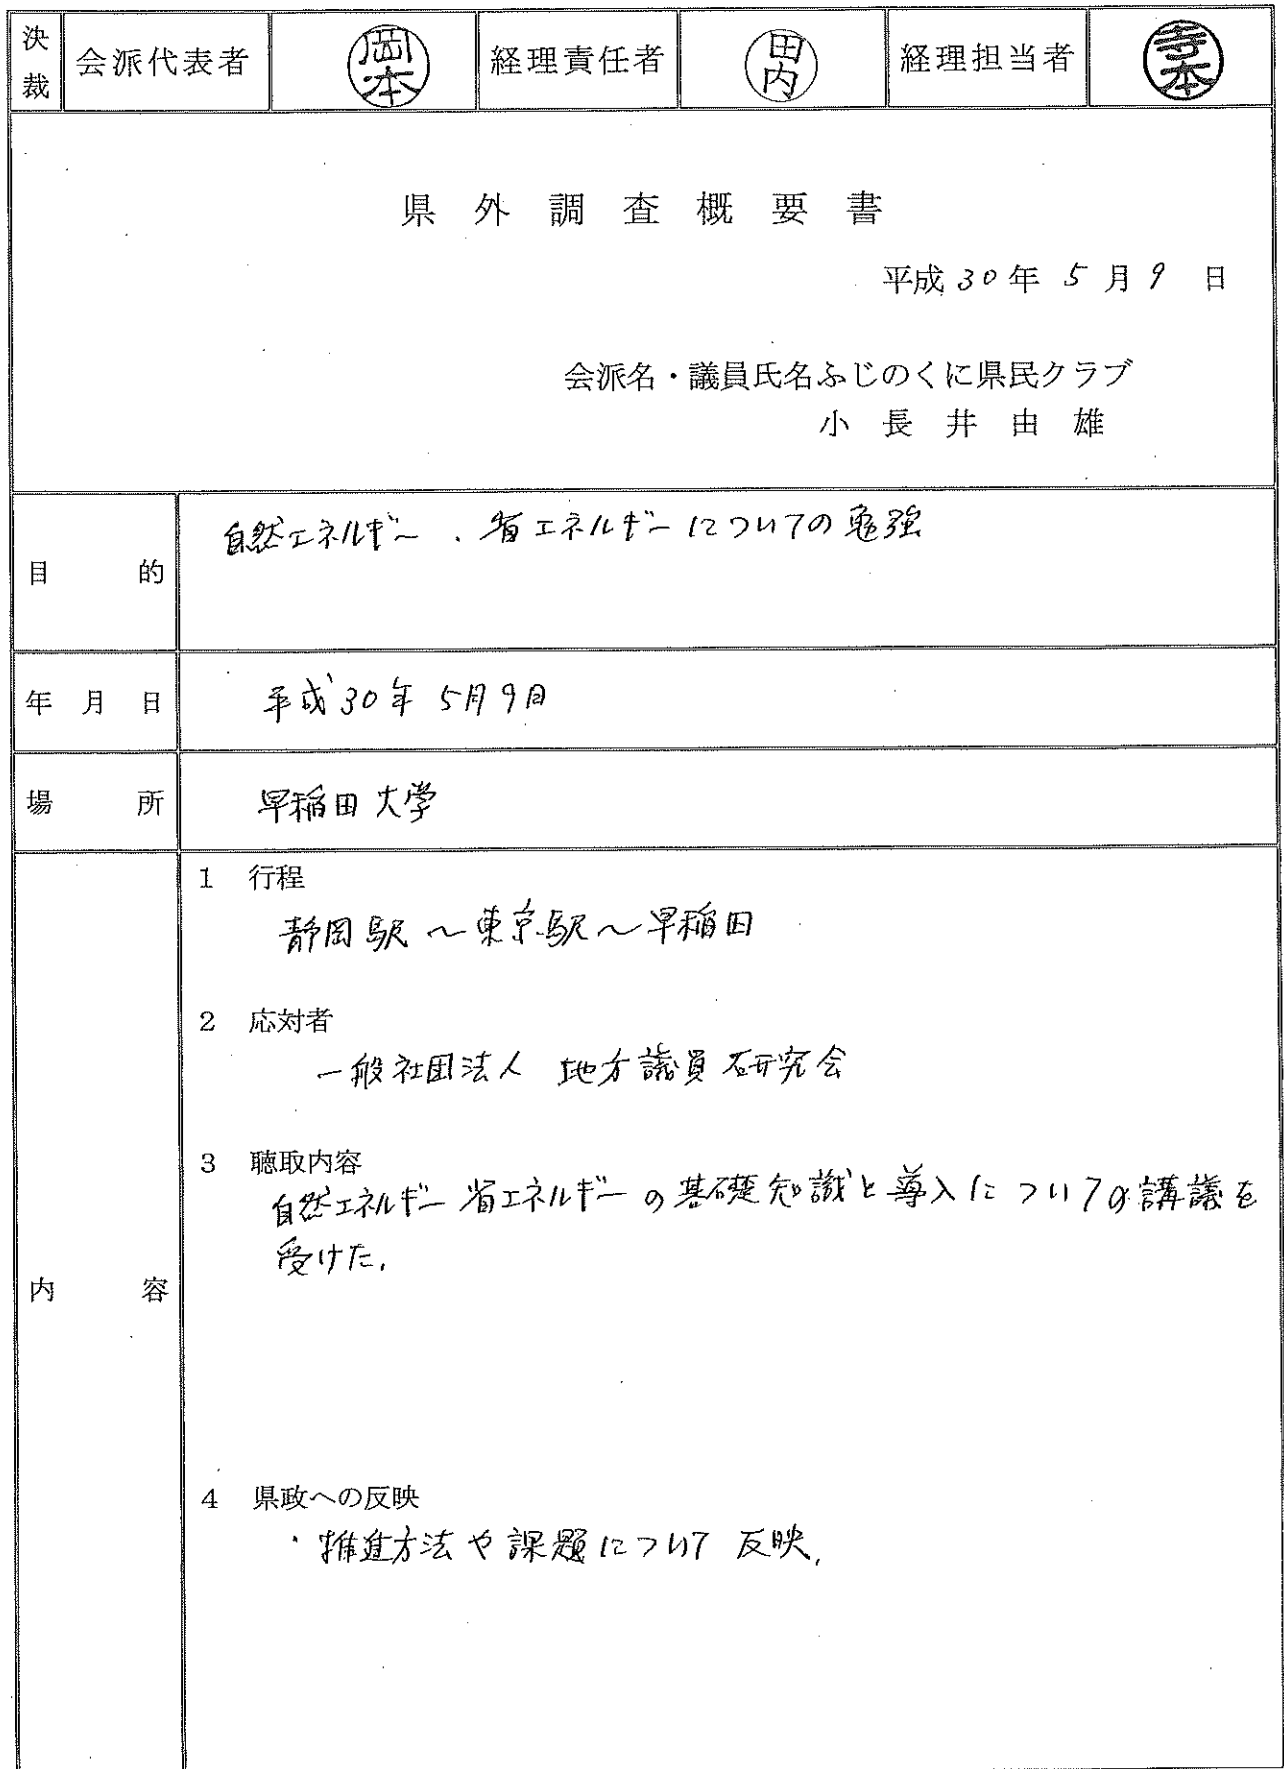 決裁 会派代表者 岡本 経理責任者 田内 経理担当者 寺本
県外調査概要書
平成30年5月9日
会派名・議員氏名ふじのくに県民クラブ
小長井由雄
目的 自然エネルギー、省エネルギーについての勉強
年月日 平成30年5月9日
場所 早稲田大学
内容
1 行程
静岡駅～東京駅～早稲田
2 応対者
一般社団法人 地方議員研究会
3 聴取内容
自然エネルギー省エネルギーの基礎知識と導入についての講議を
受けた。
4 県政への反映
・推進方法や課題について反映。